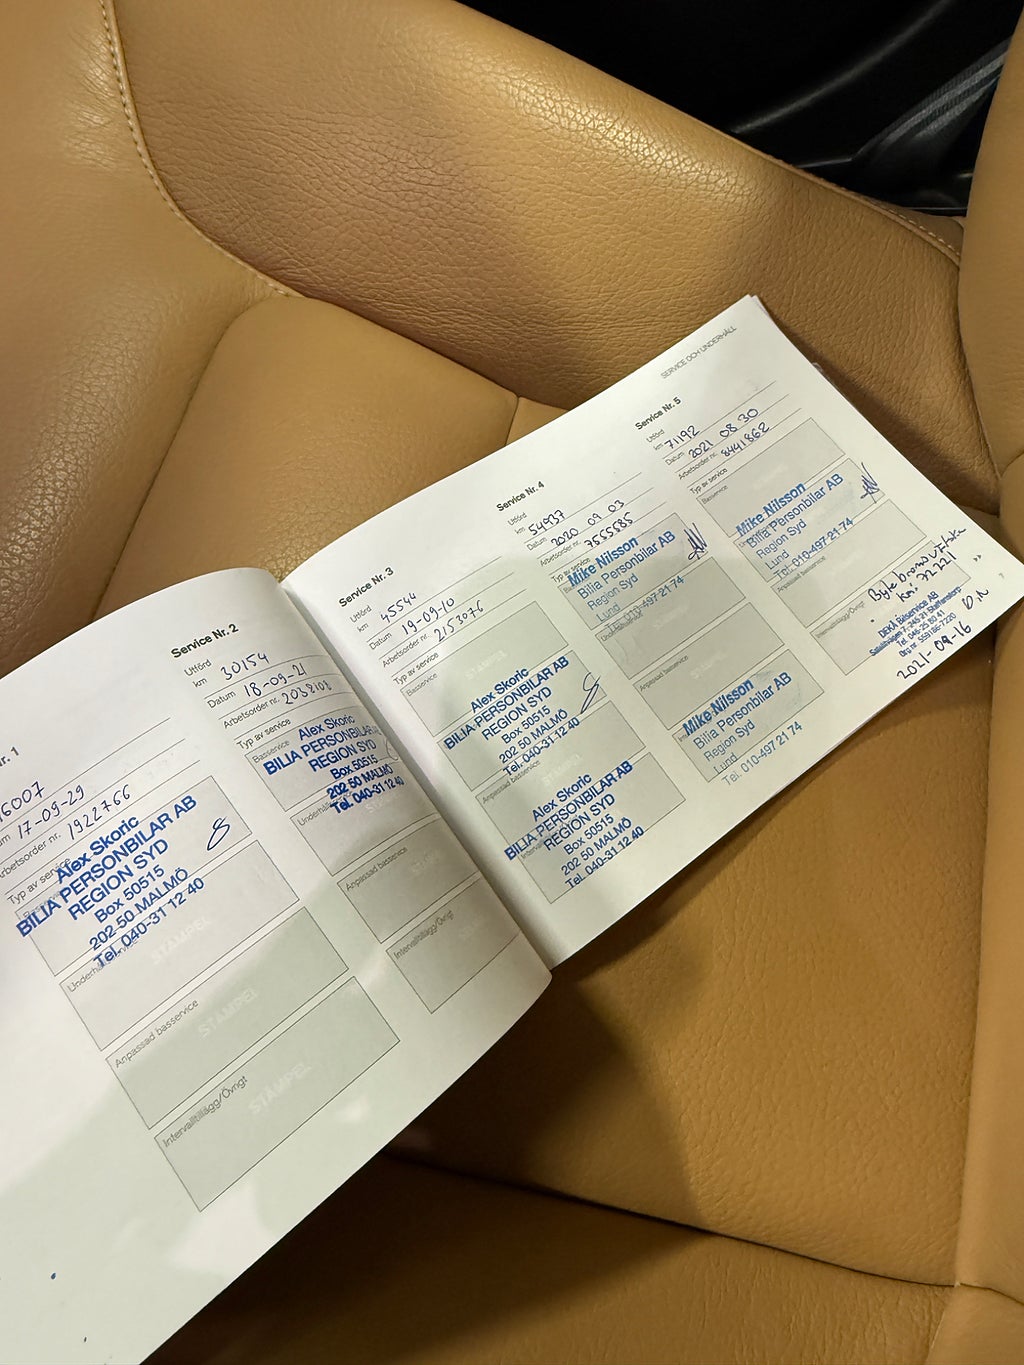 SERVICE OCH UNDERHÅLL
r. 1
6007
m 17-09-29
Arbetsorder nr. 1922766
Typ av service
Alex Skoric
BILIA PERSONBILAR AB
REGION SYD
Box 50515
202 50 MALMÖ
Tel. 040-31 12 40
STÄMPEL
Anpassad basservice
STÄMPEL
Intervalltillägg/Övrigt
STÄMPEL
Service Nr. 2
Utförd
km 30154
Datum 18-09-21
Arbetsorder nr. 2038108
Typ av service
Basservice
Alex Skoric
BILIA PERSONBILAR AB
REGION SYD
Box 50515
202 50 MALMÖ
Tel. 040-31 12 40
Anpassad basservice
Intervalltillägg/Övrigt
Service Nr. 3
Utförd
km 45544
Datum 19-09-10
Arbetsorder nr. 2153076
Typ av service
Basservice
STÄMPEL
Alex Skoric
BILIA PERSONBILAR AB
REGION SYD
Box 50515
202 50 MALMÖ
Tel. 040-31 12 40
Anpassad basservice
Alex Skoric
BILIA PERSONBILAR AB
REGION SYD
Box 50515
202 50 MALMÖ
Tel. 040-31 12 40
Service Nr. 4
Utförd
km 54937
Datum 2020 09 03
Arbetsorder nr. 7555585
Typ av service
Mike Nilsson
Bilia Personbilar AB
Region Syd
Lund
Tel. 010-497 21 74
Anpassad basservice
Mike Nilsson
Bilia Personbilar AB
Region Syd
Lund
Tel. 010-497 21 74
Service Nr. 5
Utförd
km 71192
Datum 2021 08 30
Arbetsorder nr. 8441862
Typ av service
Basservice
Mike Nilsson
Bilia Personbilar AB
Region Syd
Lund
Tel. 010-497 21 74
Anpassad basservice
Intervalltillägg/Övrigt
Byte bromsvätska
km: 72221
DEKÅ Bilservice AB
Tel. 046-25 80 41
D.N
2021-09-16